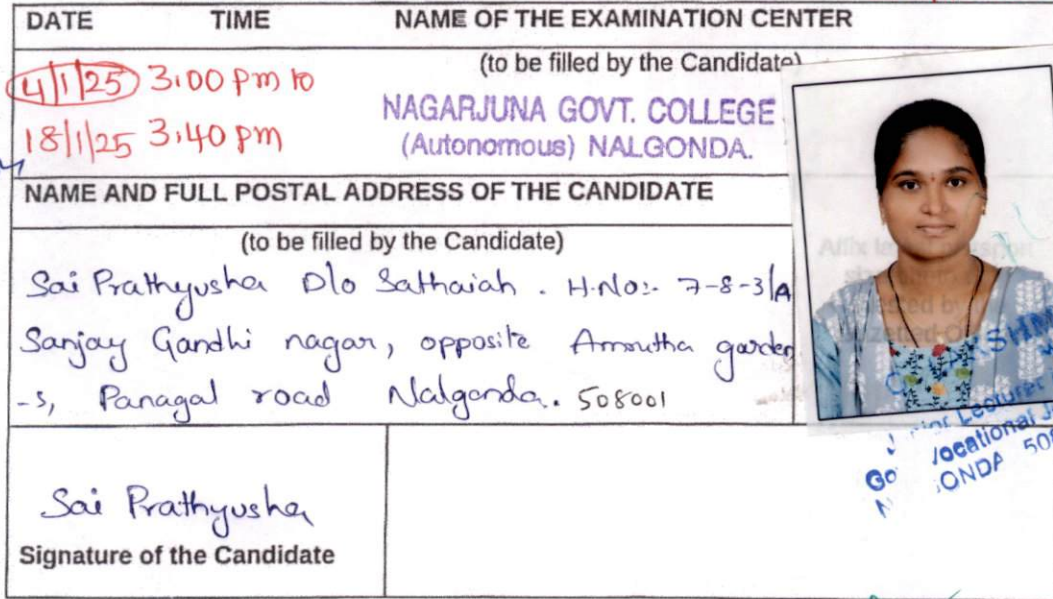 DATE TIME NAME OF THE EXAMINATION CENTER
(to be filled by the Candidate)
4/1/25 3.00 pm to
18/1/25 3.40 pm
NAGARJUNA GOVT. COLLEGE
(Autonomous) NALGONDA.
NAME AND FULL POSTAL ADDRESS OF THE CANDIDATE
(to be filled by the Candidate)
Sai Prathyusha D/o Sathaiah. H.No:- 7-8-3/A
Sanjay Gandhi nagar, opposite Amrutha garden
-s, Panagal road Nalgonda. 508001
Sai Prathyusha
Signature of the Candidate
Lecturer
Vocational